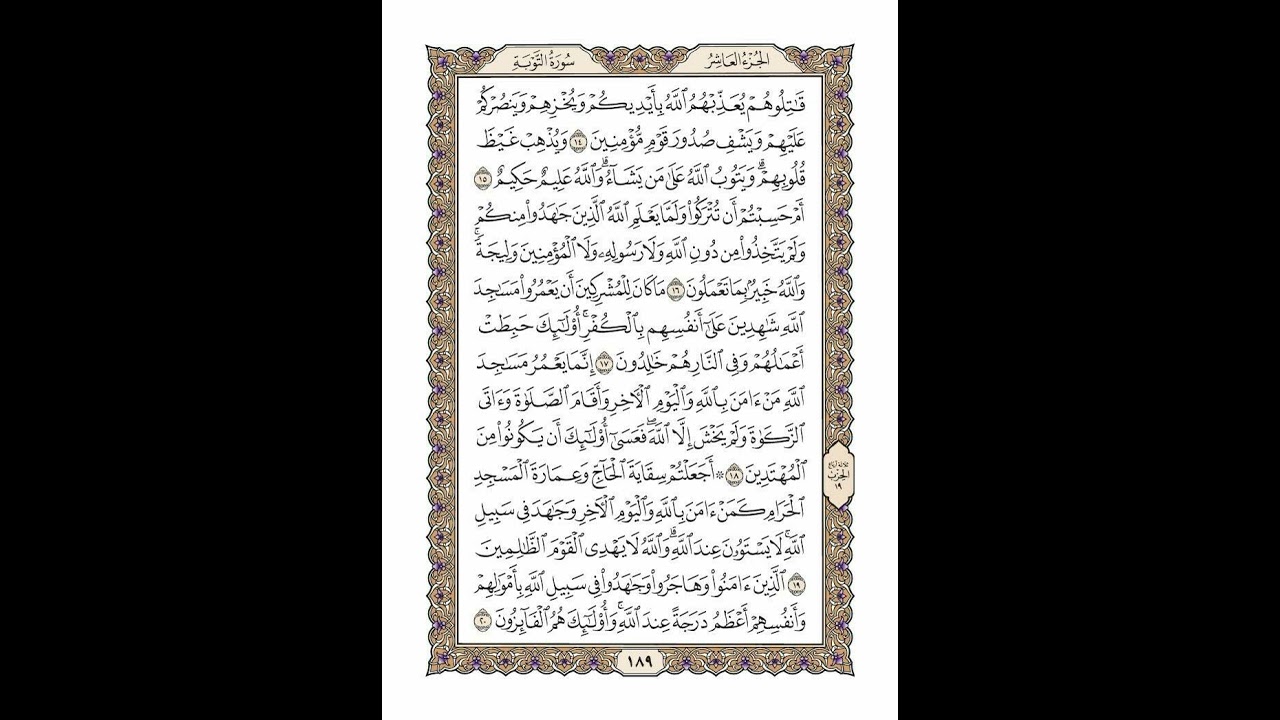 الجزء العاشر
سورة التوبة
قَٰتِلُوهُمْ يُعَذِّبْهُمُ ٱللَّهُ بِأَيْدِيكُمْ وَيُخْزِهِمْ وَيَنصُرْكُمْ
عَلَيْهِمْ وَيَشْفِ صُدُورَ قَوْمٍ مُّؤْمِنِينَ ١٤ وَيُذْهِبْ غَيْظَ
قُلُوبِهِمْ ۗ وَيَتُوبُ ٱللَّهُ عَلَىٰ مَن يَشَآءُ ۗ وَٱللَّهُ عَلِيمٌ حَكِيمٌ ١٥
أَمْ حَسِبْتُمْ أَن تُتْرَكُوا۟ وَلَمَّا يَعْلَمِ ٱللَّهُ ٱلَّذِينَ جَٰهَدُوا۟ مِنكُمْ
وَلَمْ يَتَّخِذُوا۟ مِن دُونِ ٱللَّهِ وَلَا رَسُولِهِۦ وَلَا ٱلْمُؤْمِنِينَ وَلِيجَةً ۚ
وَٱللَّهُ خَبِيرٌۢ بِمَا تَعْمَلُونَ ١٦ مَا كَانَ لِلْمُشْرِكِينَ أَن يَعْمُرُوا۟ مَسَٰجِدَ
ٱللَّهِ شَٰهِدِينَ عَلَىٰٓ أَنفُسِهِم بِٱلْكُفْرِ ۚ أُو۟لَٰٓئِكَ حَبِطَتْ
أَعْمَٰلُهُمْ وَفِى ٱلنَّارِ هُمْ خَٰلِدُونَ ١٧ إِنَّمَا يَعْمُرُ مَسَٰجِدَ
ٱللَّهِ مَنْ ءَامَنَ بِٱللَّهِ وَٱلْيَوْمِ ٱلْءَاخِرِ وَأَقَامَ ٱلصَّلَوٰةَ وَءَاتَى
ٱلزَّكَوٰةَ وَلَمْ يَخْشَ إِلَّا ٱللَّهَ ۖ فَعَسَىٰٓ أُو۟لَٰٓئِكَ أَن يَكُونُوا۟ مِنَ
ٱلْمُهْتَدِينَ ١٨ ۞ أَجَعَلْتُمْ سِقَايَةَ ٱلْحَآجِّ وَعِمَارَةَ ٱلْمَسْجِدِ
ٱلْحَرَامِ كَمَنْ ءَامَنَ بِٱللَّهِ وَٱلْيَوْمِ ٱلْءَاخِرِ وَجَٰهَدَ فِى سَبِيلِ
ٱللَّهِ ۚ لَا يَسْتَوُۥنَ عِندَ ٱللَّهِ ۗ وَٱللَّهُ لَا يَهْدِى ٱلْقَوْمَ ٱلظَّٰلِمِينَ
١٩ ٱلَّذِينَ ءَامَنُوا۟ وَهَاجَرُوا۟ وَجَٰهَدُوا۟ فِى سَبِيلِ ٱللَّهِ بِأَمْوَٰلِهِمْ
وَأَنفُسِهِمْ أَعْظَمُ دَرَجَةً عِندَ ٱللَّهِ ۚ وَأُو۟لَٰٓئِكَ هُمُ ٱلْفَآئِزُونَ ٢٠
ثلاثة أرباع
الحزب
١٩
١٨٩